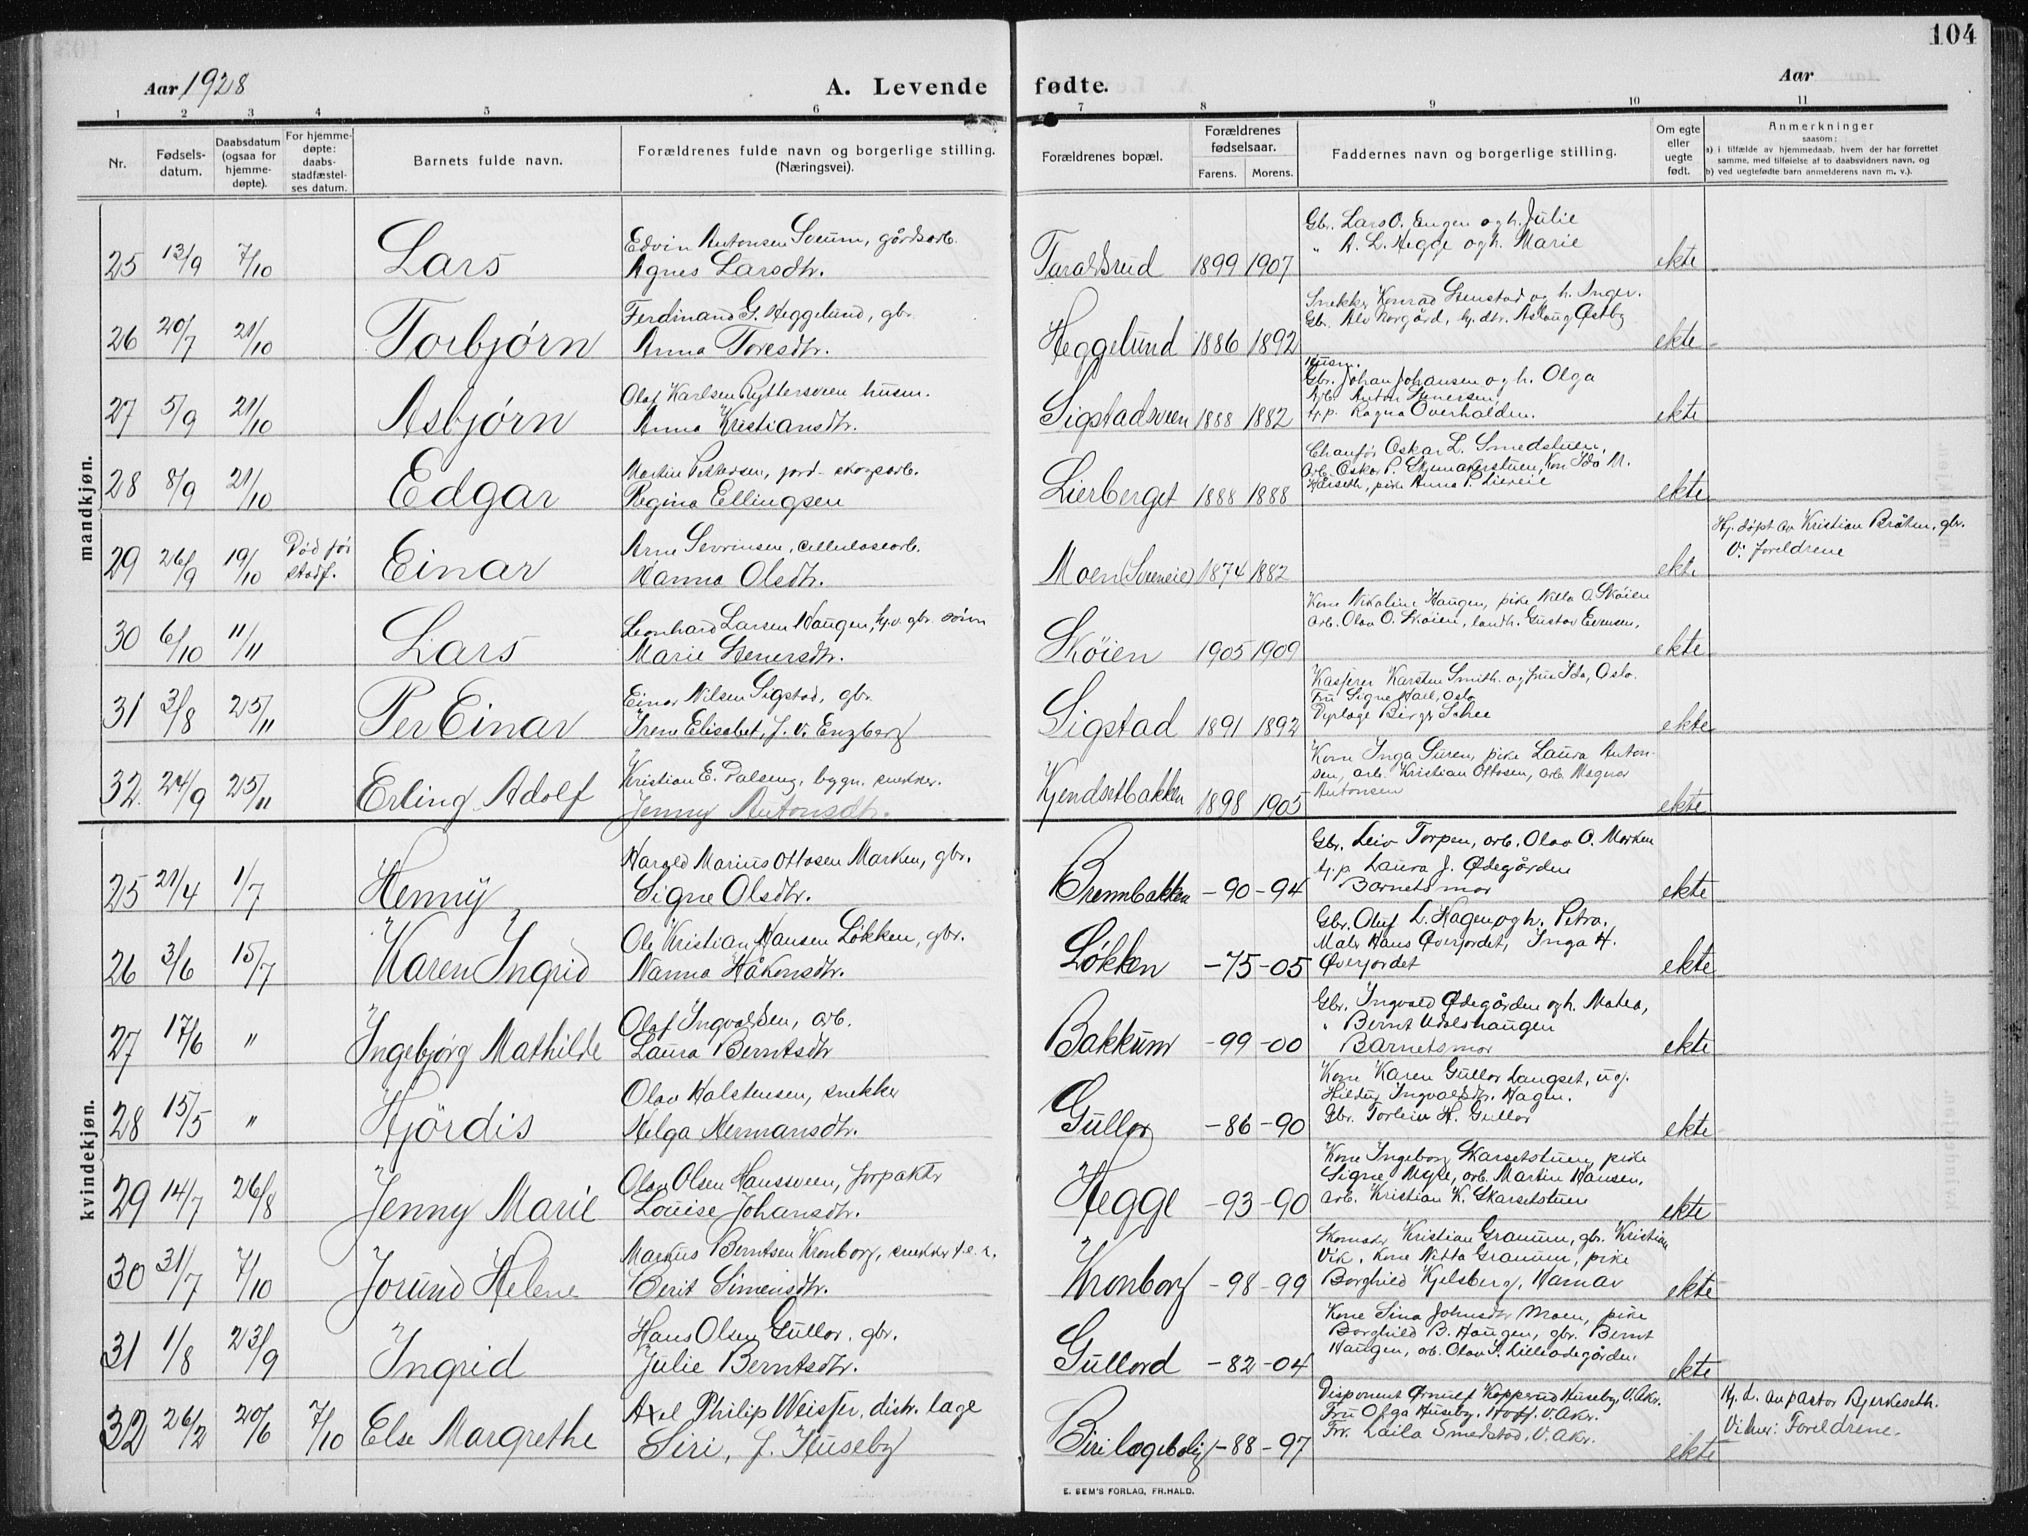 104
Aar 1928
A. Levende fødte.
Aar
1 2 3 4 5 6 7 8 9 10 11
Nr.
Fødsels-
datum.
Daabsdatum
(ogsaa for
hjemme-
døpte).
For hjemme-
døpte:
daabs-
stadfæstel-
ses datum.
Barnets fulde navn.
Forældrenes fulde navn og borgerlige stilling.
(Næringsvei).
Forældrenes bopæl.
Forældrenes
fødselsaar.
Farens. Morens.
Faddernes navn og borgerlige stilling.
Om egte
eller
uegte
født.
Anmerkninger
saasom:
a) i tilfælde av hjemmedaab, hvem der har forrettet
samme, med tilføielse af to daabsvidners navn, og
b) ved uegtefødte barn anmelderens navn m. v.).
mandkjøn.
25 13/9 7/10 Lars
Edvin Antonsen Sveum, gårdsarb.
Agnes Larsdtr.
Taraldsrud 1899 1907
Gbr. Lars O. Engen og h. Julie
" A. L. Hegge og h. Marie
ekte
26 20/7 21/10 Torbjørn
Ferdinand G. Heggelund, gbr.
Anna Toresdtr.
Heggelund 1886 1892
Snekker Konrad Stenstad og h. Inger.
Gbr. Alv Norgård, gbr. dtr. Aslaug Østby
ekte
27 5/9 21/10 Asbjørn
Olaf Karlsen Ryttersveen husm.
Anna Kristiansdtr.
Sigstadsveen 1888 1882
Husm.
Gbr. Johan Johansen og h. Olga
Arb. Anton Simersen,
t.p. Ragna Overhalden.
ekte
28 8/9 21/10 Edgar
Martin Pettersen, jord- skogsarb.
Regina Ellingsen
Lierberget 1888 1888
Chaufør Oskar L. Smedstuen,
Arb. Oskar P. Skjemakerstuen, Kone Ida M.
Kårseth, pike Anna P. Liereie
ekte
29 26/9 19/10 Død før
stadf.
Einar
Arne Sevrinsen, cellulosearb.
Hanna Olsdtr.
Moen (Sveneie) 1874 1882
ekte
Hj. døpt av Kristian Bråten, gbr.
V: Foreldrene
30 6/10 11/11 Lars
Leonhard Larsen Haugen, hj.v. gbr. sønn
Marie Stenersdtr.
Skøien 1905 1909
Kone Nikoline Haugen, pike Nilla O. Skøien
Arb. Olav O. Skøien, landh. Gustav Evensen,
ekte
31 3/8 25/11 Per Einar
Einar Nilsen Sigstad, gbr.
Irene Elisabet, f. v. Enzberg
Sigstad 1891 1892
Kasserer Karsten Smith og frue Ida, Oslo.
Fru Signe Hall, Oslo
Dyrlæge Birger Schee
ekte
32. 24/9 25/11 Erling Adolf
Kristian E. Dalseng, bygn. snekker.
Jenny Antonsdtr.
Kjendsetbakken 1898 1905
Kone Inga Suren, pike Laura Anton-
sen, arb. Kristian Ottosen, arb. Magnar
Antonsen
ekte
kvindekjøn.
25 21/4 1/7 Henny
Harald Marius Ottosen Marken, gbr.
Signe Olsdtr.
Brennbakken -90 -94
Gbr. Leiv Torpen, arb. Olav O. Marken
t.p. Laura J. Ødegården
Barnets mor
ekte
26 3/6 15/7 Karen Ingrid
Ole Kristian Hansen Løkken, gbr.
Nanna Håkonsdtr.
Løkken -75 -05
Gbr. Oluf L. Hagen og h. Petra.
Maler Hans Øverjordet, Inga H.
Øverjordet
ekte
27 17/6 " Ingebjørg Mathilde
Olaf Ingvaldsen, arb.
Laura Berntsdtr
Bakkum -99 -00
Gbr. Ingvald Ødegården og h. Matea,
" Bernt Udalshaugen
Barnets mor
ekte
28 15/5 " Hjördis
Olav Halstensen, snekker
Helga Hermansdtr.
Gullor -86 -90
Kone Karen Gullor Langset, ug.
Hildur Ingvaldsdtr. Hagen.
Gbr. Torleiv H. Gullor
ekte
29 14/7 26/8 Jenny Marie
Olav Olsen Hansveen, forpakter
Louise Johansdtr.
Hegge -93 -90
Kone Ingeborg Skarsetstuen, pike
Signe Myre, arb. Martin Hansen,
arb. Kristian K. Skarsetstuen
ekte
30 31/7 7/10 Jorund Helene
Markus Berntsen Kronborg, snekker f.e.r.
Berit Simensdtr.
Kronborg -98 -99
Skomaker Kristian Granum, gbr. Kristian
Vik, kone Nitta Granum, pike
Borghild Kjelsberg, Hamar
ekte
31 1/8 23/9 Ingrid
Hans Olsen Gullor, gbr.
Julie Berntsdtr.
Gullord -82 -04
Kone Sina Johnsdtr Moen, pike
Borghild B. Haugen, gbr. Bernt
Haugen, arb. Olav S. Lilleødegården.
ekte
32 26/2 20/6 7/10 Else Margrethe
Axel Philip Weisser, distr. læge
Siri, f. Huseby
Biri lægebolig -88 -97
Disponent Ørnulf Kopperud Huseby, V. Akr.
Fru Olga Huseby, Hoff. V. Akr.
Frk. Laila Smedstad, V. Akr.
ekte
Hj. d. av pastor Bjerkeseth.
Vitner: Foreldrene.
E. SEM'S FORLAG, FR.HALD.